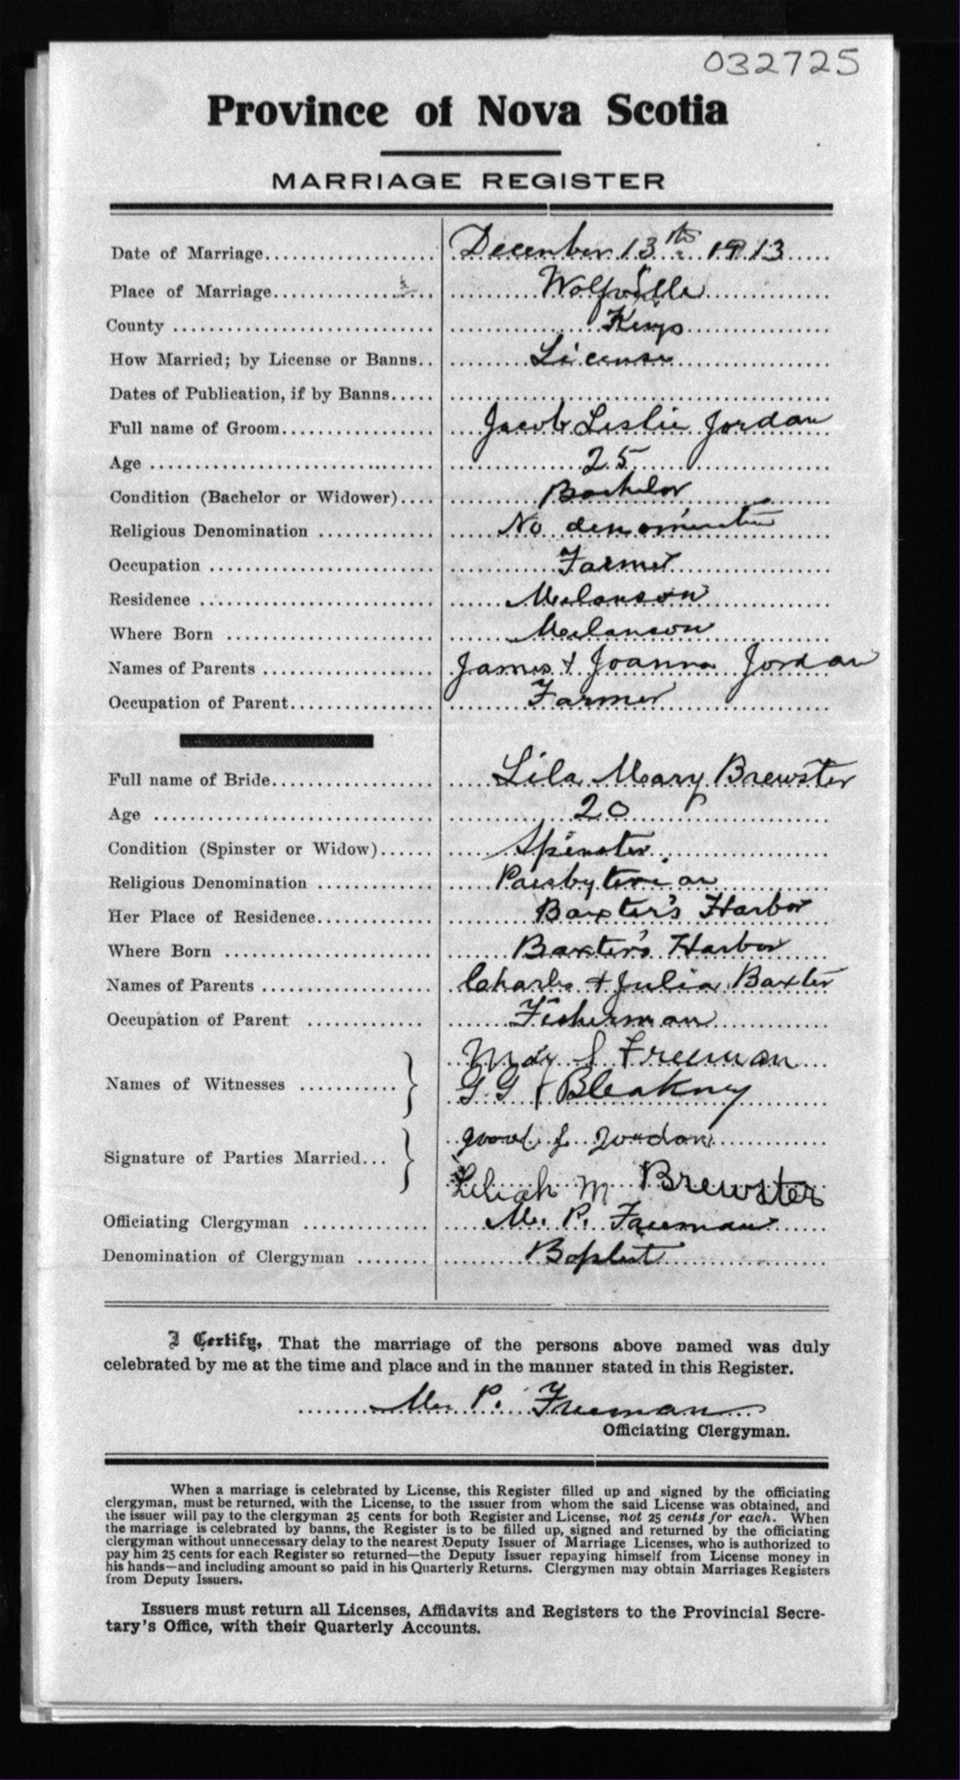 032725
Province of Nova Scotia
MARRIAGE REGISTER
Date of Marriage.................... December 13th 1913
Place of Marriage.................... Wolfville
County .............................. Kings
How Married; by License or Banns.. License
Dates of Publication, if by Banns.....
Full name of Groom.................. Jacob Leslie Jordan
Age .............................. 25
Condition (Bachelor or Widower).... Bachelor
Religious Denomination ............. No denomination
Occupation .......................... Farmer
Residence .......................... Melanson
Where Born ........................ Melanson
Names of Parents .................... James & Joanna Jordan
Occupation of Parent................. Farmer
Full name of Bride................... Lila Mary Brewster
Age .............................. 20
Condition (Spinster or Widow)...... Spinster.
Religious Denomination ............. Paesbyterian
Her Place of Residence.............. Baxter's Harbor
Where Born ........................ Baxter's Harbor
Names of Parents .................... Charles & Julia Baxter
Occupation of Parent ............. Fisherman
Names of Witnesses ........... } S Freeman
G G Bleakney
Signature of Parties Married... } L Jordan
Leliah M Brewster
Officiating Clergyman ............. M. P. Freeman
Denomination of Clergyman ........ Baptist
I Certify, That the marriage of the persons above named was duly
celebrated by me at the time and place and in the manner stated in this Register.
M. P. Freeman
Officiating Clergyman.
When a marriage is celebrated by License, this Register filled up and signed by the officiating
clergyman, must be returned, with the License, to the issuer from whom the said License was obtained, and
the issuer will pay to the clergyman 25 cents for both Register and License, not 25 cents for each. When
the marriage is celebrated by banns, the Register is to be filled up, signed and returned by the officiating
clergyman without unnecessary delay to the nearest Deputy Issuer of Marriage Licenses, who is authorized to
pay him 25 cents for each Register so returned—the Deputy Issuer repaying himself from License money in
his hands—and including amount so paid in his Quarterly Returns. Clergymen may obtain Marriages Registers
from Deputy Issuers.
Issuers must return all Licenses, Affidavits and Registers to the Provincial Secre-
tary's Office, with their Quarterly Accounts.